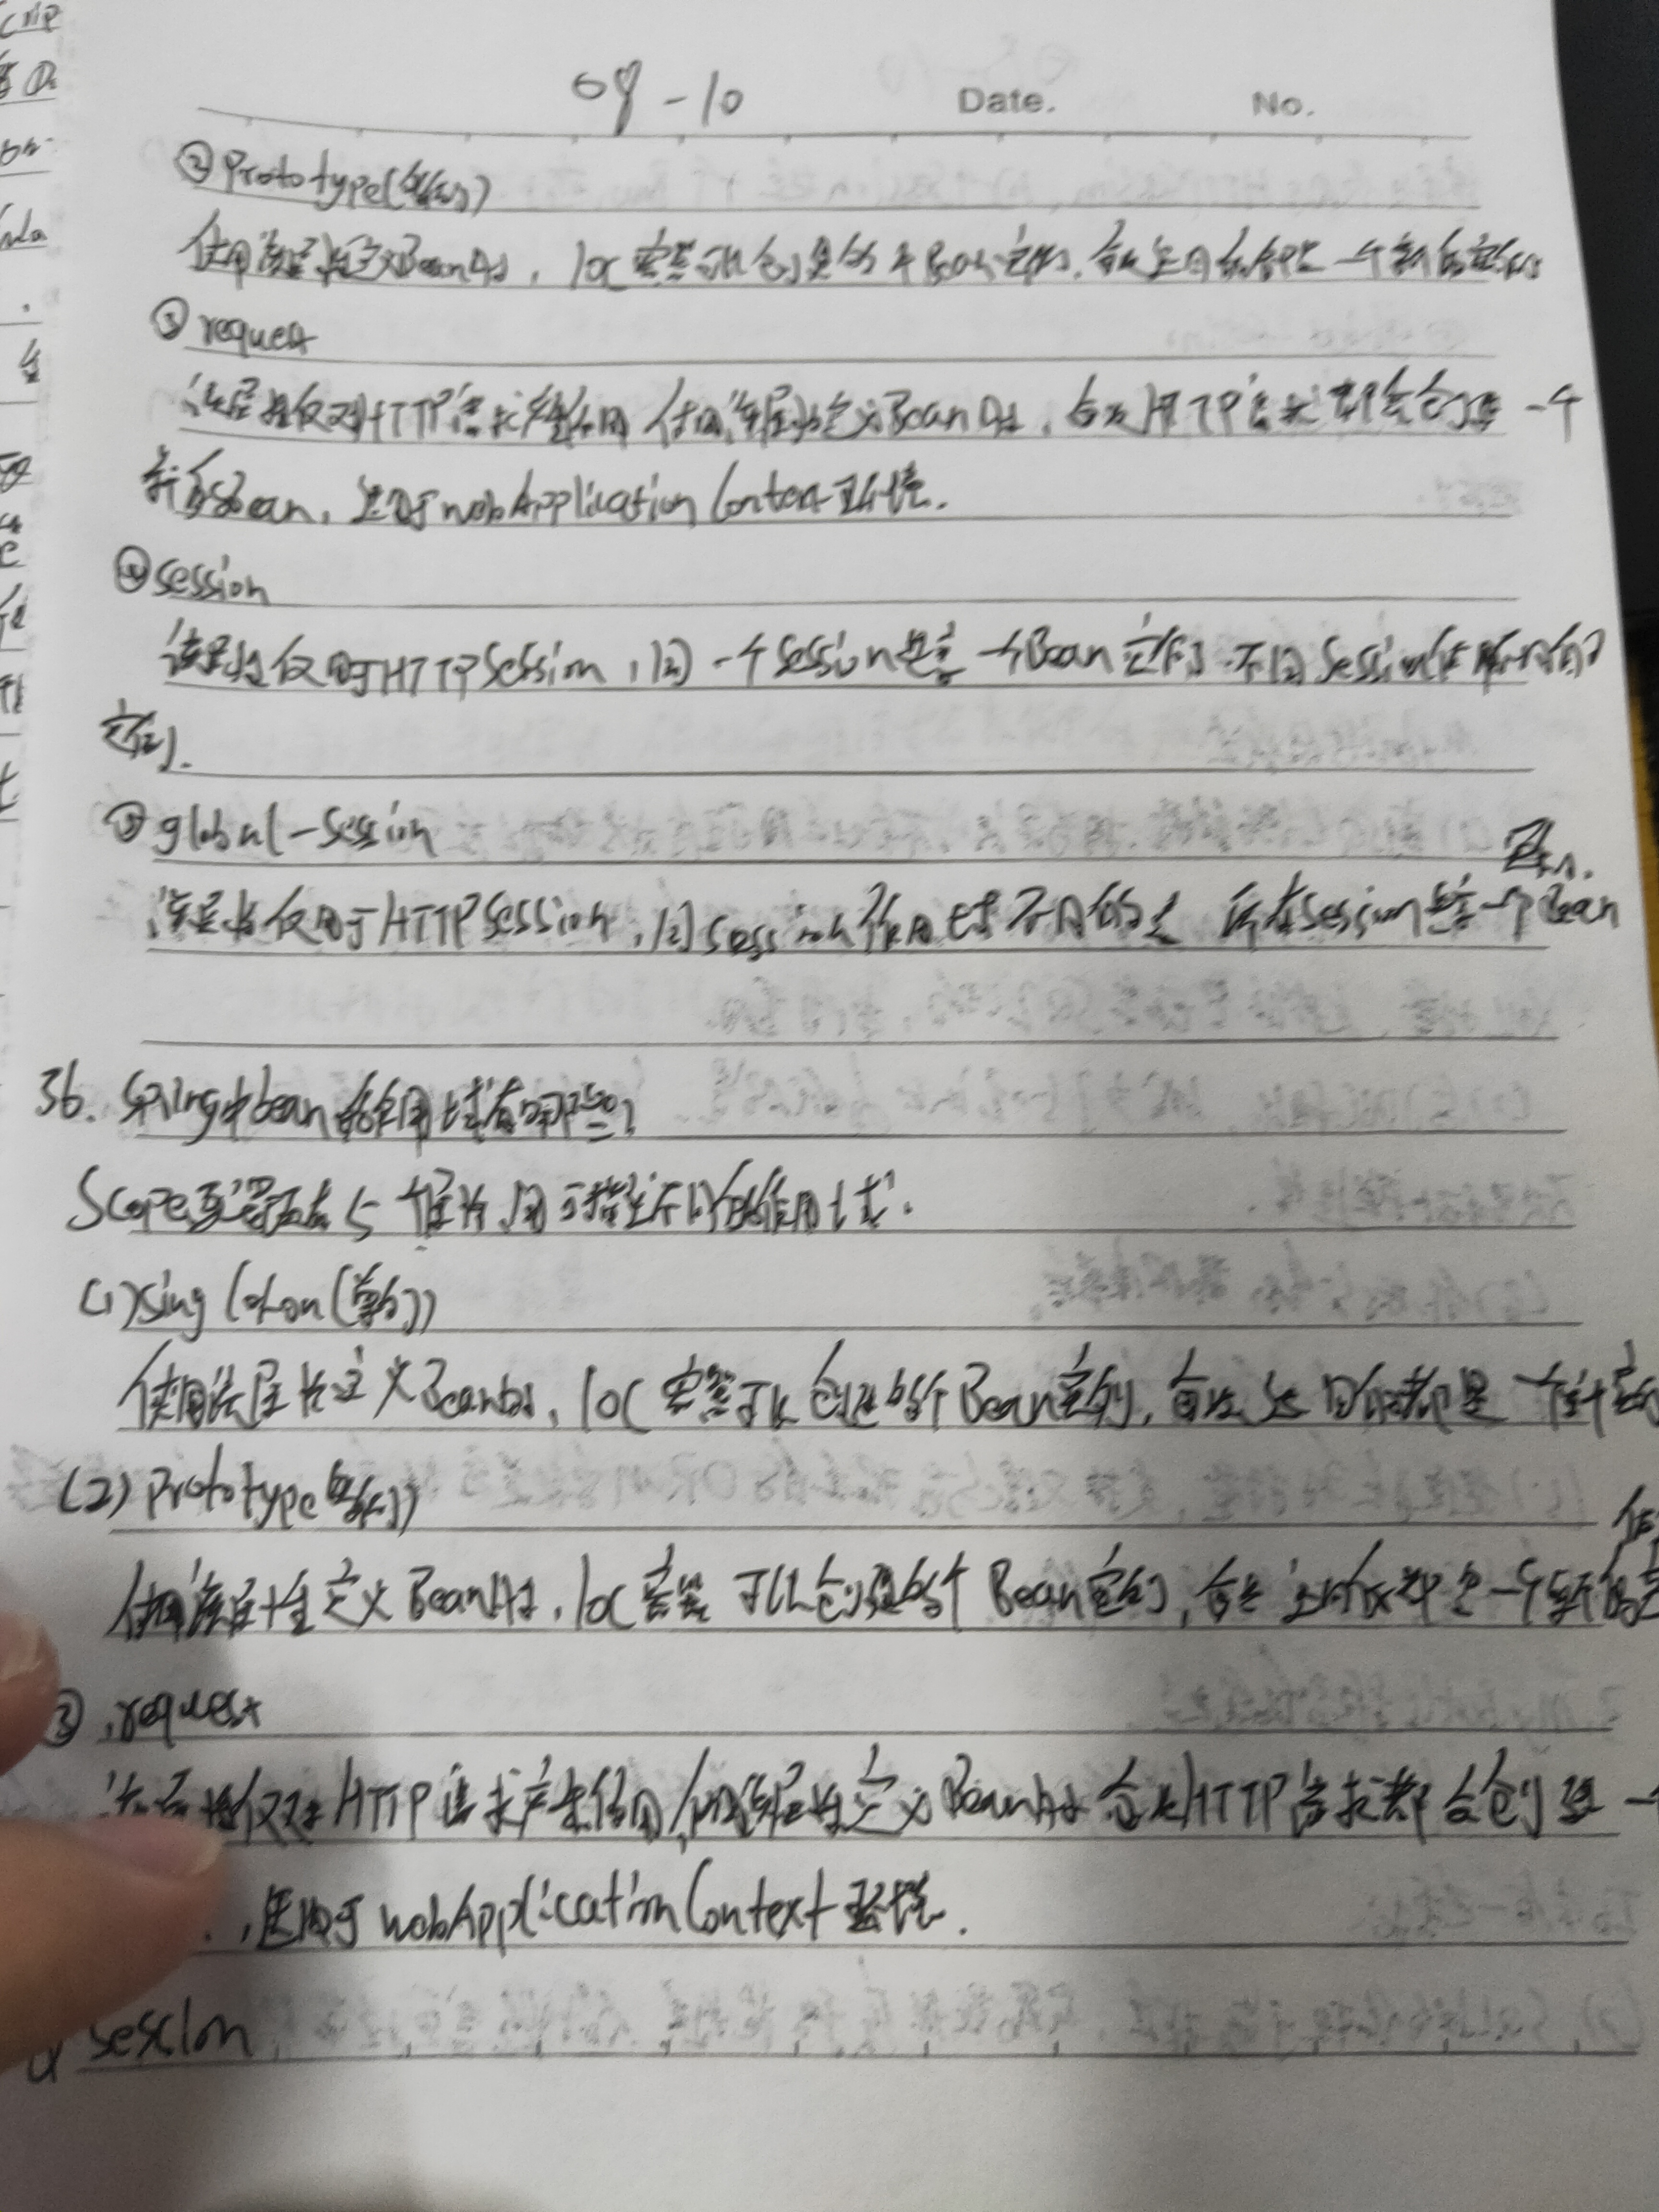 08-10 Date. No.
② Prototype(多例)
使用该属性定义Bean时，IOC容器可以创建多个Bean实例，每次返回的都是一个新的实例
③ request
该属性仅对HTTP请求产生作用 使用该属性定义Bean时，每次HTTP请求都会创建一个
新的Bean，适用于webApplicationContext环境.
④ session
该属性仅用于HTTP Session，同一个Session共享一个Bean实例 不同Session使用不同的
实例.
⑤ global-session
环例.
该属性仅用于HTTP Session，同session作用域不同的是 所有Session共享一个Bean
36. Spring中bean的作用域有哪些?
Scope配置项有5个属性 用于描述不同的作用域.
(1)singleton(单例)
使用该属性定义Bean时，IOC容器可以创建多个Bean实例，每次返回的都是一个
(2) prototype(多例)
使用该属性定义Bean时，IOC容器 可以创建多个 Bean实例，每次返回的都是一个新的
③ .request
该属性仅对HTTP请求产生作用，使用该属性定义Bean时 每次HTTP请求都会创建一
，适用于webApplicationContext环境.
session